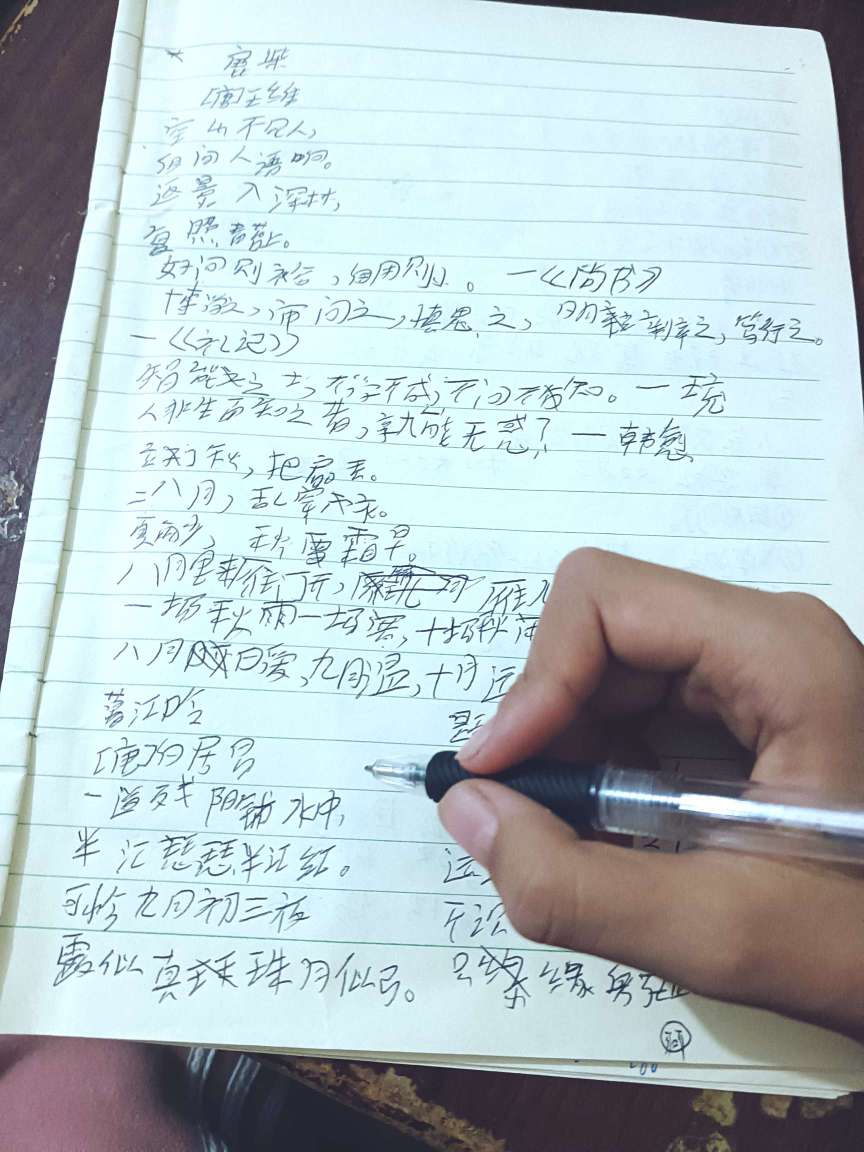 鹿柴
[唐]王维
空山不见人,
但闻人语响。
返景入深林,
复照青苔上。
好问则裕,自用则小。—《尚书》
博学之,审问之,慎思之,明辩之,笃行之。
—《礼记》
智能之士,不学不成,不问不知。—王充
人非生而知之者,孰能无惑?—韩愈
立了秋,把扇丢。
二八月,乱穿衣。
夏雨少,秋霜早。
八月里 雁门开, 雁
一场秋雨一场寒,十场秋雨
八月暖,九月温,十月
暮江吟
题
[唐]白居易
一道残阳铺水中,
半江瑟瑟半江红。
远
可怜九月初三夜
不识
露似真珠月似弓。
只缘身在